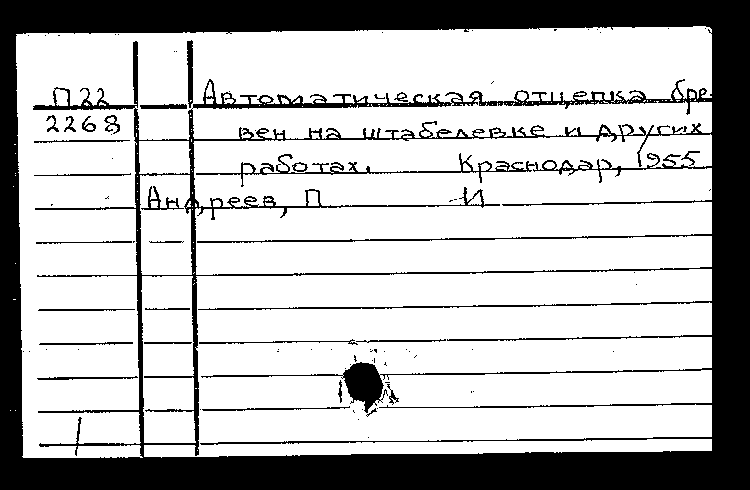 П22 Автоматическая отцепка бре-
2268 вен на штабелевке и других
работах. Краснодар, 1955
Андреев, П И